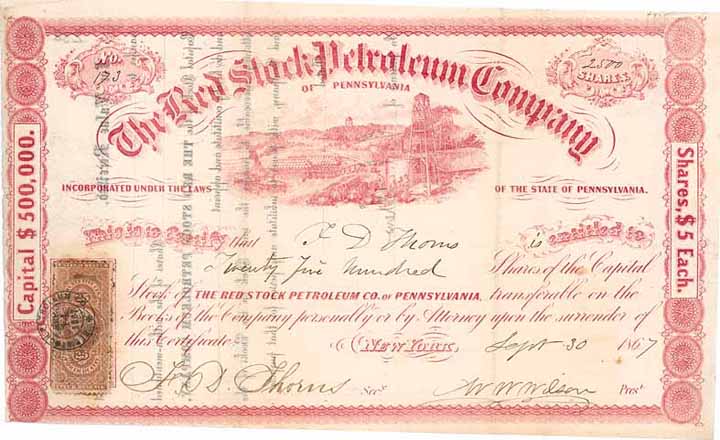 No
173
2500
SHARES
The Red Stock Petroleum Company
OF PENNSYLVANIA
INCORPORATED UNDER THE LAWS
OF THE STATE OF PENNSYLVANIA.
Capital $500,000.
Shares, $5 Each.
This is to Certify that F D Thorns is entitled to
Twenty Five Hundred Shares of the Capital
Stock of THE RED STOCK PETROLEUM CO. OF PENNSYLVANIA, transferable on the
Books of the Company personally or by Attorney upon the surrender of
this Certificate
NEW YORK, Sept 30 1867
F. D. Thorns Secy
W W Wilson Prest